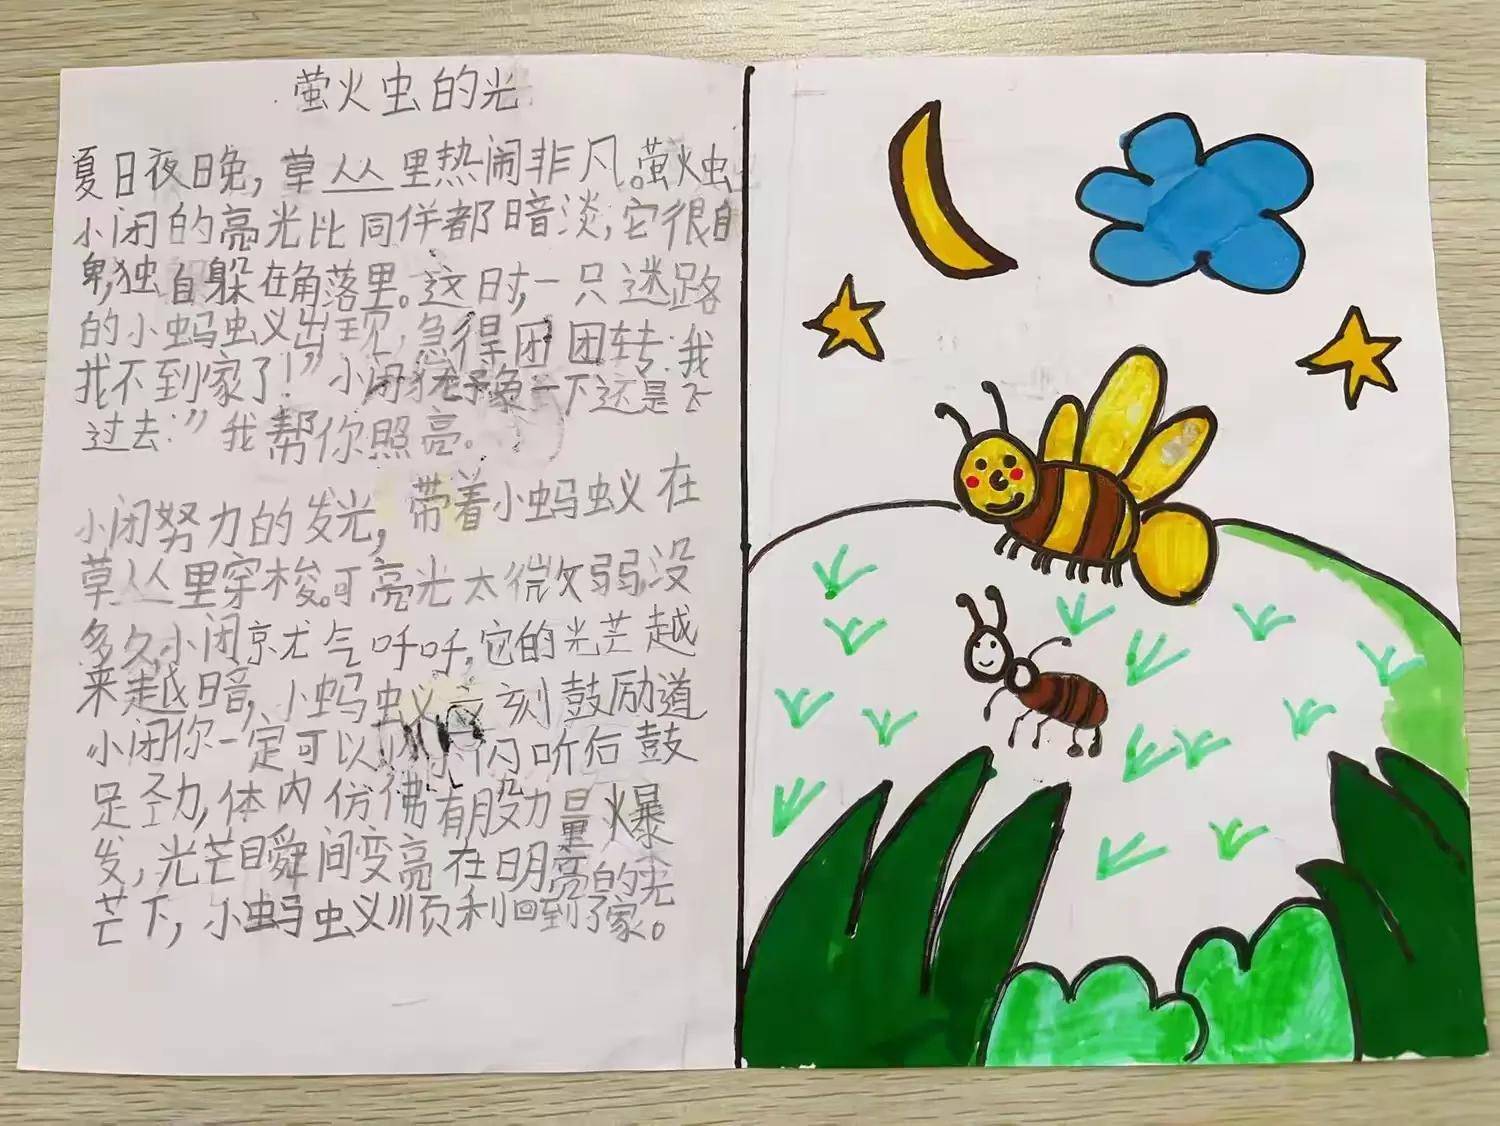 萤火虫的光
夏日夜晚,草丛里热闹非凡。萤火虫
小闭的亮光比同伴都暗淡,它很自
卑,独自躲在角落里。这时,一只迷路
的小蚂蚁出现,急得团团转:我
找不到家了!”小闭犹豫一下还是飞
过去:”我帮你照亮。
小闭努力的发光,带着小蚂蚁在
草丛里穿梭。可亮光太微弱没
多久,小闭就气呼呼,它的光芒越
来越暗,小蚂蚁立刻鼓励道
小闭你一定可以 闪听后鼓
足劲,体内仿佛有股力量爆
发,光芒瞬间变亮在明亮的光
芒下,小蚂蚁顺利回到了家。